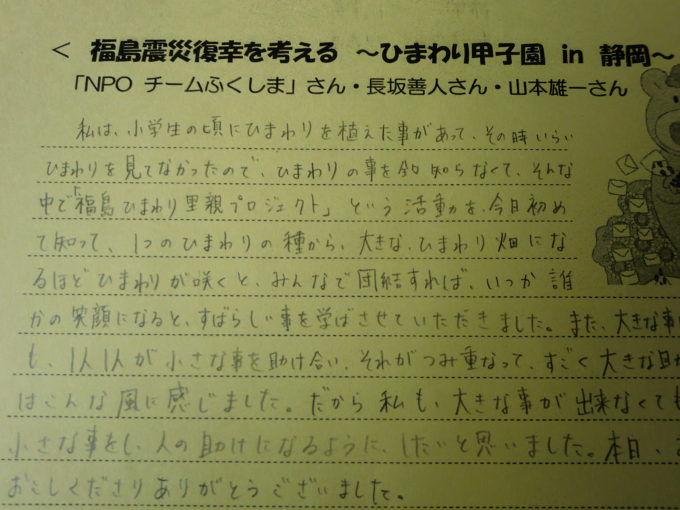 < 福島震災復幸を考える ～ひまわり甲子園 in 静岡～
「NPO チームふくしま」さん・長坂善人さん・山本雄一さん
私は、小学生の頃にひまわりを植えた事があって、その時いらい
ひまわりを見てなかったので、ひまわりの事を知らなくて、そんな
中で「福島ひまわり里親プロジェクト」という活動を、今日初め
て知って、1つのひまわりの種から、大きな、ひまわり畑にな
るほどひまわりが咲くと、みんなで団結すれば、いつか誰
かの笑顔になると、すばらしい事を学ばさせていただきました。また、大きな事
も、1人1人が小さな事を助け合い、それがつみ重なって、すごく大きな
はこんな風に感じました。だから私も、大きな事が出来なくても
小さな事をし、人の助けになるように、したいと思いました。本日、
おこしくださりありがとうございました。